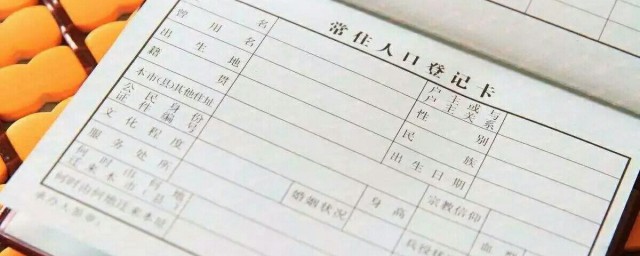 常住人口登记卡
曾用名
户主或与
户主关系
出生地
性别
籍贯
民族
本市(县)其他住址
出生日期
公民身份
证件编号
文化程度
婚姻状况
身高
宗教信仰
服务处所
何时由何地
迁来本市(县)
何时由何地迁来本址